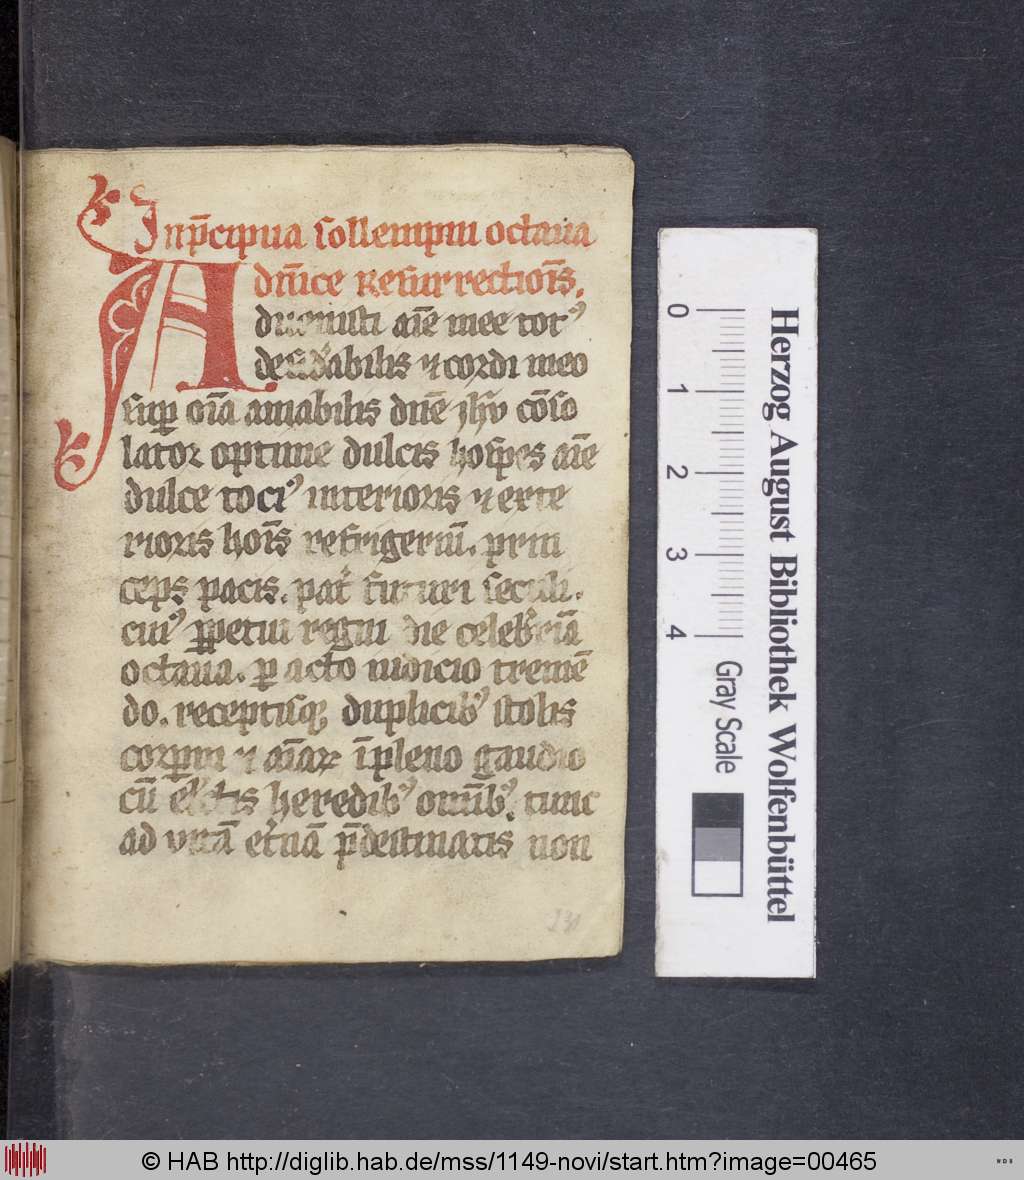 In p̄cipua sollempni octaua
dn̄ice Resurrectionis̄.
Aduenisti aīe mee totꝰ
desid̾abilis ⁊ cordi meo
suꝑ oīa amabilis dn̄e ihū cōso
lator optime dulcis hospes aīe
dulce tociꝰ interioris ⁊ exte
rioris hoīs refrigeriū. prin
ceps pacis. pat̾ futuri seculi.
cuiꝰ ꝑpetui regni die celeb̾riā
octaua. ꝑ acto iudicio tremē
do. receptisqꝫ duplicibꝰ stolis
corꝑm ⁊ aīaꝝ ī pleno gaudio
cū el̄ctis heredibꝰ omībꝰ. tunc
ad vitā et̾nā p̄destinatis non
231
0 1 2 3 4
Gray Scale
Herzog August Bibliothek Wolfenbüttel
© HAB http://diglib.hab.de/mss/1149-novi/start.htm?image=00465